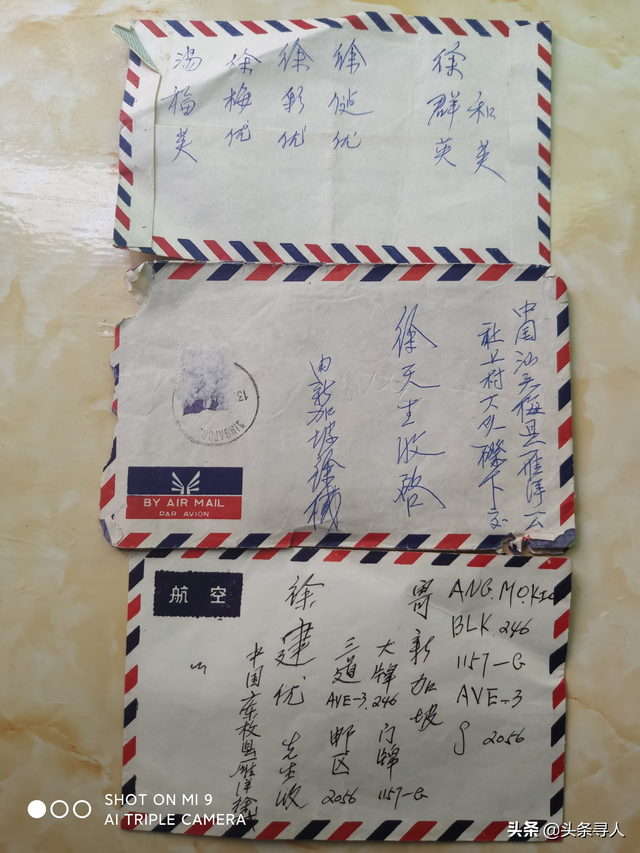 和英
徐群英
徐优
徐彩优
徐梅优
汤福英
中国汕头梅县雁洋公
社上村大队礤下交
徐天生收启
由新加坡徐
SINGAPORE
13
BY AIR MAIL
PAR AVION
航空
ANG.MO.KIO
BLK.246
1157-G
AVE-3
S 2056
寄新加坡
大牌246门牌1157-G
三道AVE-3.邮区2056
徐建优先生收
中国广东梅县雁洋徐
SHOT ON MI 9
AI TRIPLE CAMERA
头条 @头条寻人